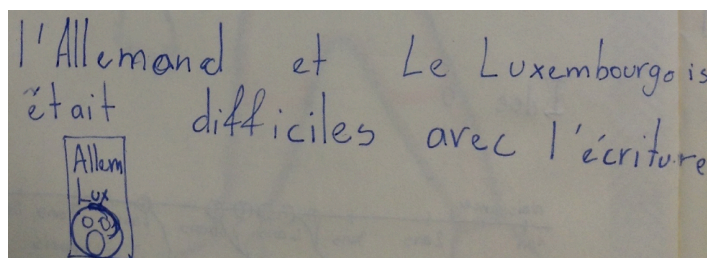 l'Allemand et Le Luxembourgois
était difficiles avec l'écriture
Allem
Lux